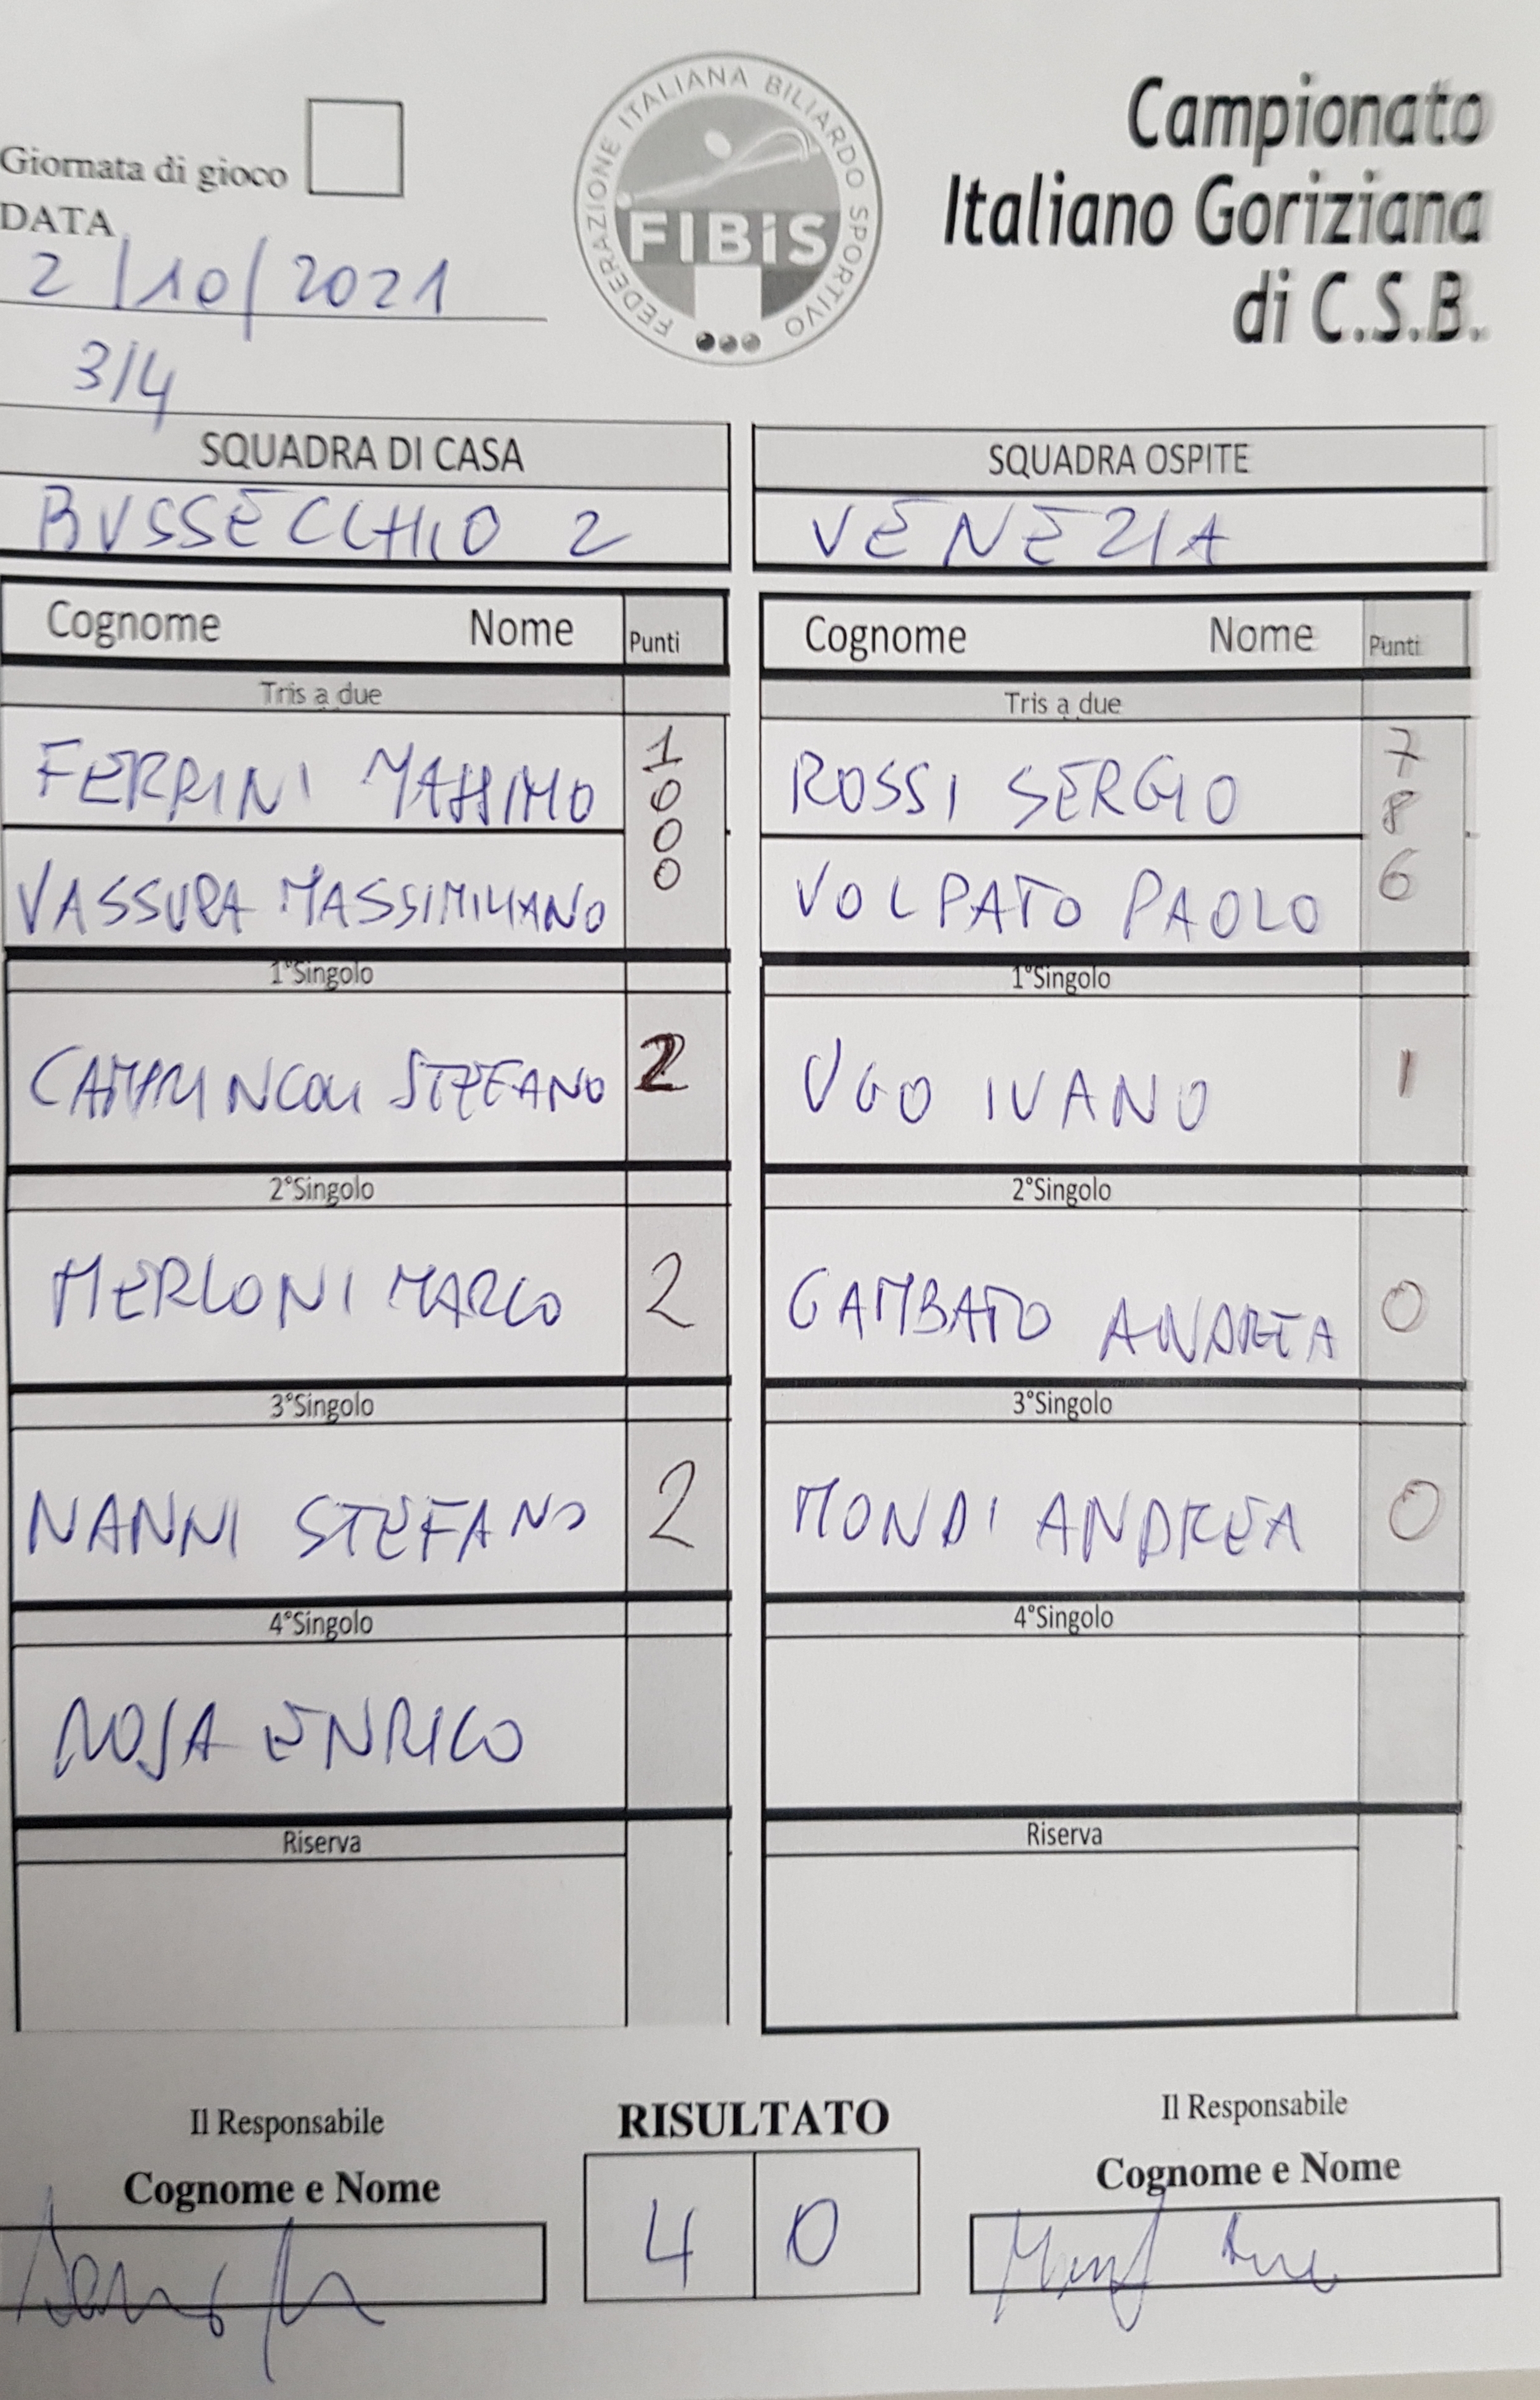 Giornata di gioco
DATA
2/10/2021
3/4
FEDERAZIONE ITALIANA BILIARDO SPORTIVO
FIBiS
Campionato
Italiano Goriziana
di C.S.B.
SQUADRA DI CASA
BUSSECCHIO 2
SQUADRA OSPITE
VENEZIA
Cognome Nome Punti
Tris a due
FERRINI MASSIMO
VASSURA MASSIMILIANO
1
0
0
0
1°Singolo
STEFANO 2
2°Singolo
MERLONI MARCO 2
3°Singolo
NANNI STEFANO 2
4°Singolo
ROSA ENRICO
Riserva
Cognome Nome Punti
Tris a due
ROSSI SERGIO
VOLPATO PAOLO
7
8
6
1°Singolo
UGO IVANO 1
2°Singolo
GAMBATO ANDREA 0
3°Singolo
MONDI ANDREA 0
4°Singolo
Riserva
Il Responsabile
Cognome e Nome
RISULTATO
4 0
Il Responsabile
Cognome e Nome